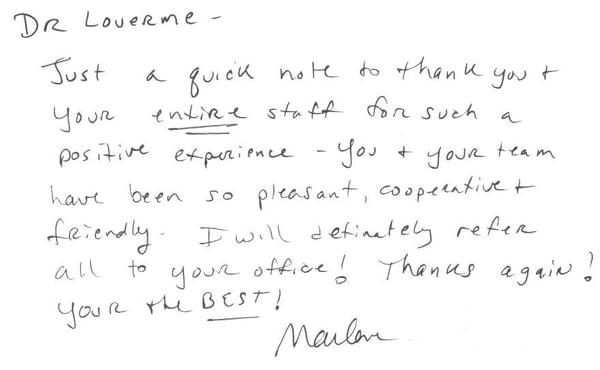 DR Loverme -
Just a quick note to thank you +
your entire staff for such a
positive experience - you + your team
have been so pleasant, cooperative +
friendly. I will definately refer
all to your office! Thanks again!
your the BEST!